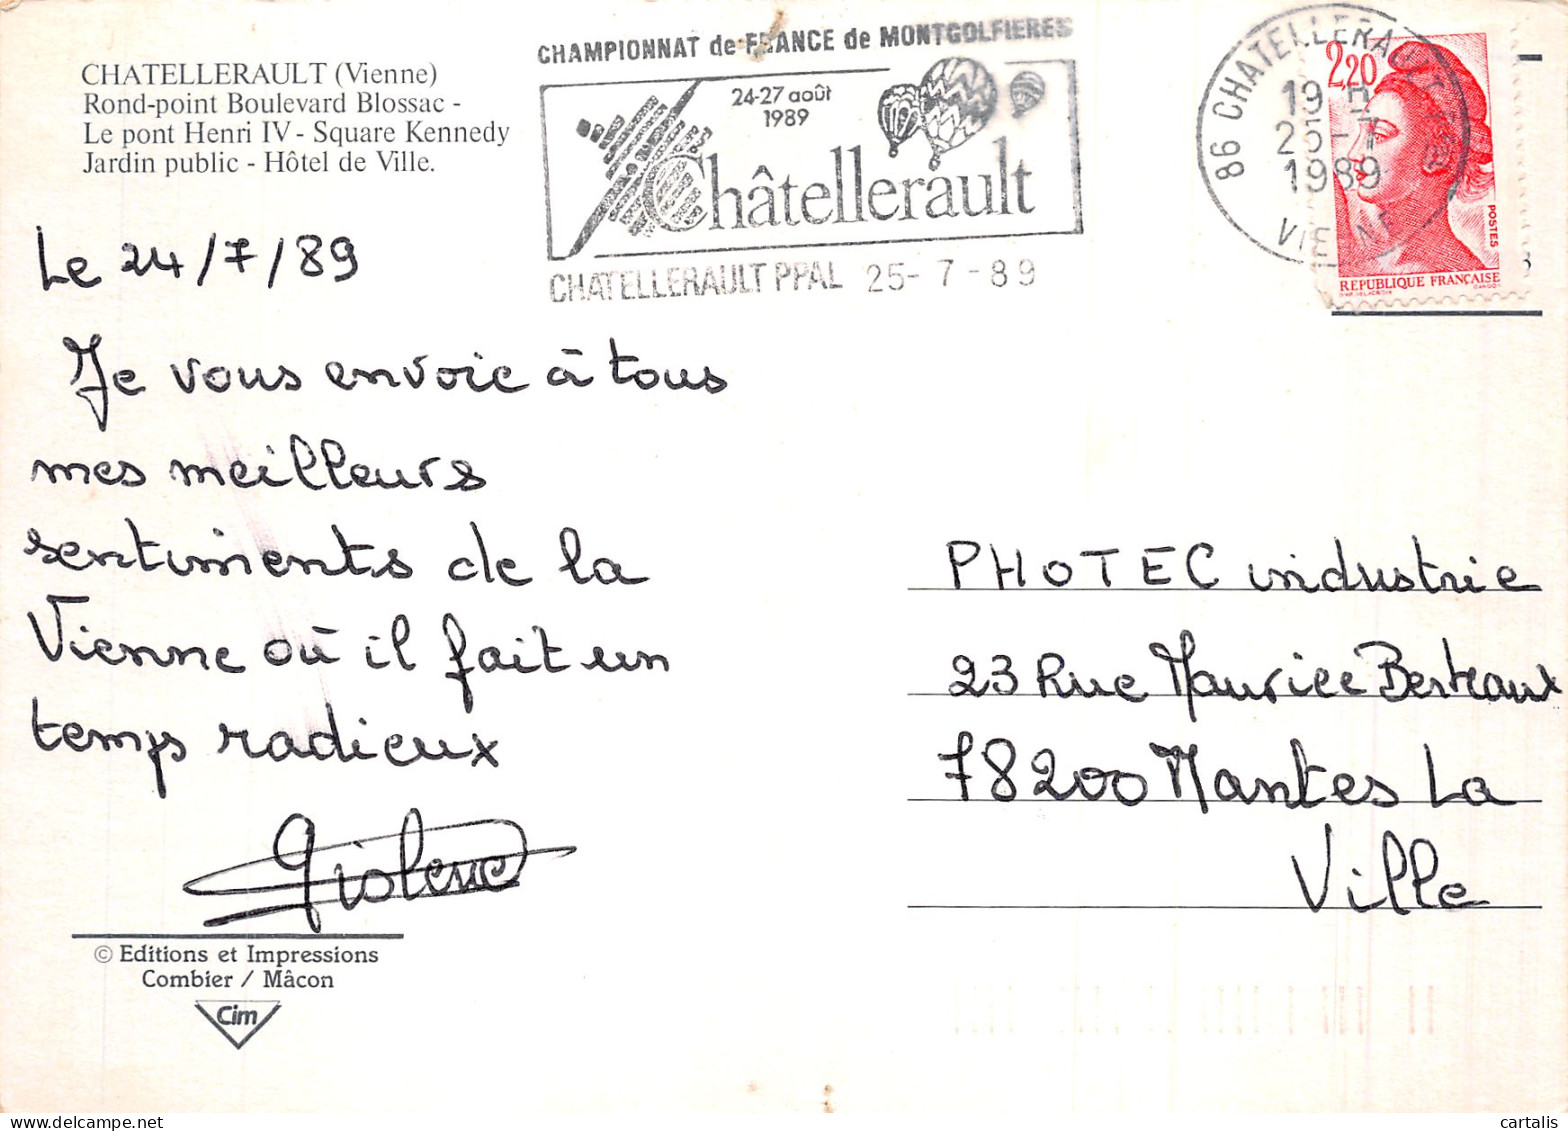 CHATELLERAULT (Vienne)
Rond-point Boulevard Blossac -
Le pont Henri IV - Square Kennedy
Jardin public - Hôtel de Ville.
CHAMPIONNAT de FRANCE de MONTGOLFIERES
24-27 août
1989
Châtellerault
CHATELLERAULT PPAL 25-7-89
86 CHATELLERAULT
19 H
25-7
1989
VIENNE
2,20
POSTES
REPUBLIQUE FRANÇAISE
Le 24/7/89
Je vous envoie à tous
mes meilleurs
sentiments de la
Vienne où il fait un
temps radieux
PHOTEC industrie
23 Rue Maurice Berteaux
78200 Mantes La
Ville
© Editions et Impressions
Combier / Mâcon
Cim
cartalis
© delcampe.net